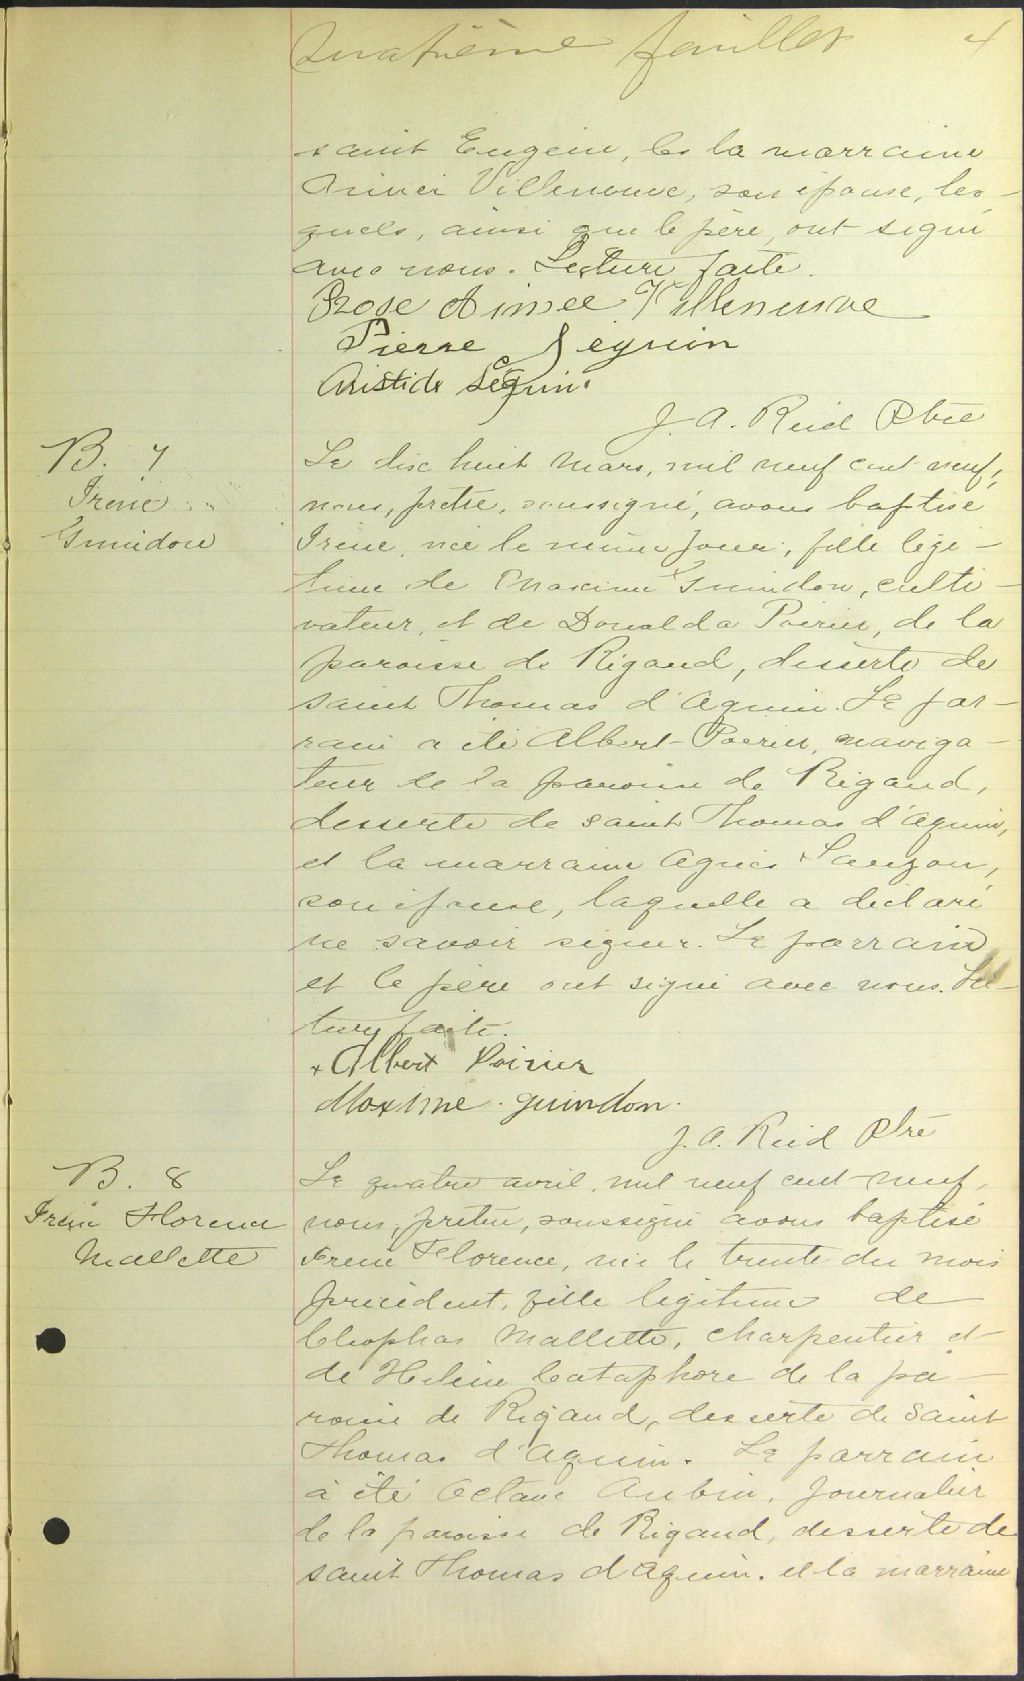 Quatrième feuillet 4
saint Eugène, et la marraine
Aimée Villeneuve, son épouse, les-
quels, ainsi que le père, ont signé
avec nous. Lecture faite.
Rose Aimee Villeneuve
Pierre Seguin
Aristide Séguin.
J. A. Reid Ptre
B. 7
Irène
Guindon
Le dix huit mars, mil neuf cent neuf,
nous, prêtre, soussigné, avons baptisé
Irène, née le même jour, fille légi-
time de Maxime Guindon, culti-
vateur, et de Donalda Poirier, de la
paroisse de Rigaud, desserte de
saint Thomas d'Aquin. Le par-
rain a été Albert Poirier, naviga-
teur de la paroisse de Rigaud,
desserte de saint Thomas d'Aquin,
et la marraine Agnès Sauzon,
son épouse, laquelle a déclaré
ne savoir signer. Le parrain
et le père ont signé avec nous. Lec-
ture faite.
Albert Poirier
Maxime guindon.
J. A. Reid Ptre
B. 8
Irène Florence
Mallette
Le quatre avril, mil neuf cent neuf,
nous, prêtre, soussigné avons baptisé
Irène Florence, née le trente du mois
précédent, fille légitime de
Cléophas Mallette, charpentier et
de Hélène Cataphore de la pa-
roisse de Rigaud, desserte de saint
Thomas d'Aquin. Le parrain
a été Octave Aubin, journalier
de la paroisse de Rigaud, desserte de
saint Thomas d'Aquin. et la marraine